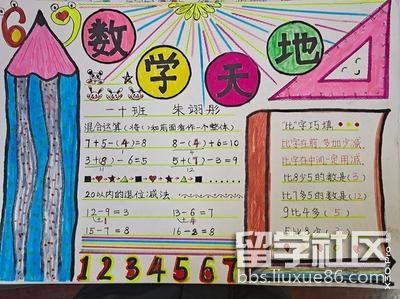 69
数学天地
一十班 朱翊彤
混合运算(将()和前面看作一个整体)
7+5-(4)=8 8-(4)+6=10
12
3+(8)-6=5 5+(7)-3=9
11 12
20以内的退位减法
12-9=3 13-6=7
+1 +4
15-7=8 16-8=8
1234567
比字巧填
比字在前,多加少减
比字在中间一定用减
比8少5的数是(3)
比7多5的数是(12)
9比4多(5)
留学社区
bbs.liuxue86.com